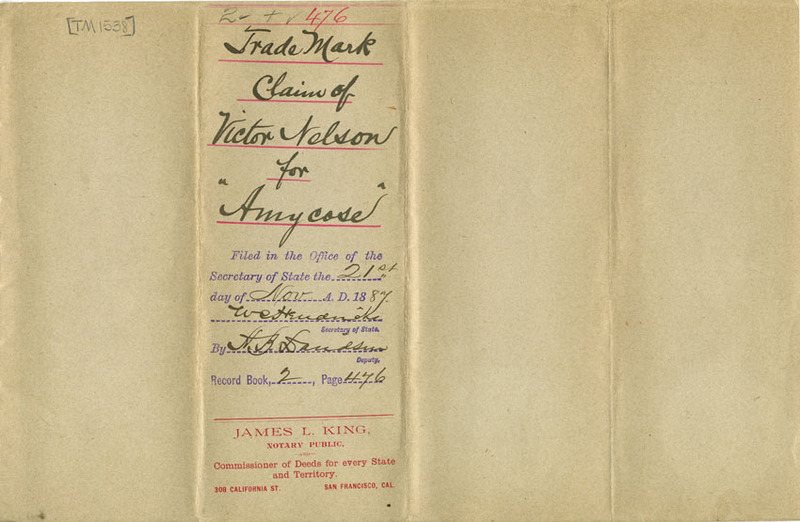 [TM 1538]
2 - + √ 476
Trade Mark
Claim of
Victor Nelson
for
"Amycose"
Filed in the Office of the
Secretary of State the 21st
day of Nov A. D. 1887.
W C Hendricks
Secretary of State.
By
Deputy.
Record Book, 2, Page 476
JAMES L. KING,
NOTARY PUBLIC,
—AND—
Commissioner of Deeds for every State
and Territory.
308 CALIFORNIA ST. SAN FRANCISCO, CAL.